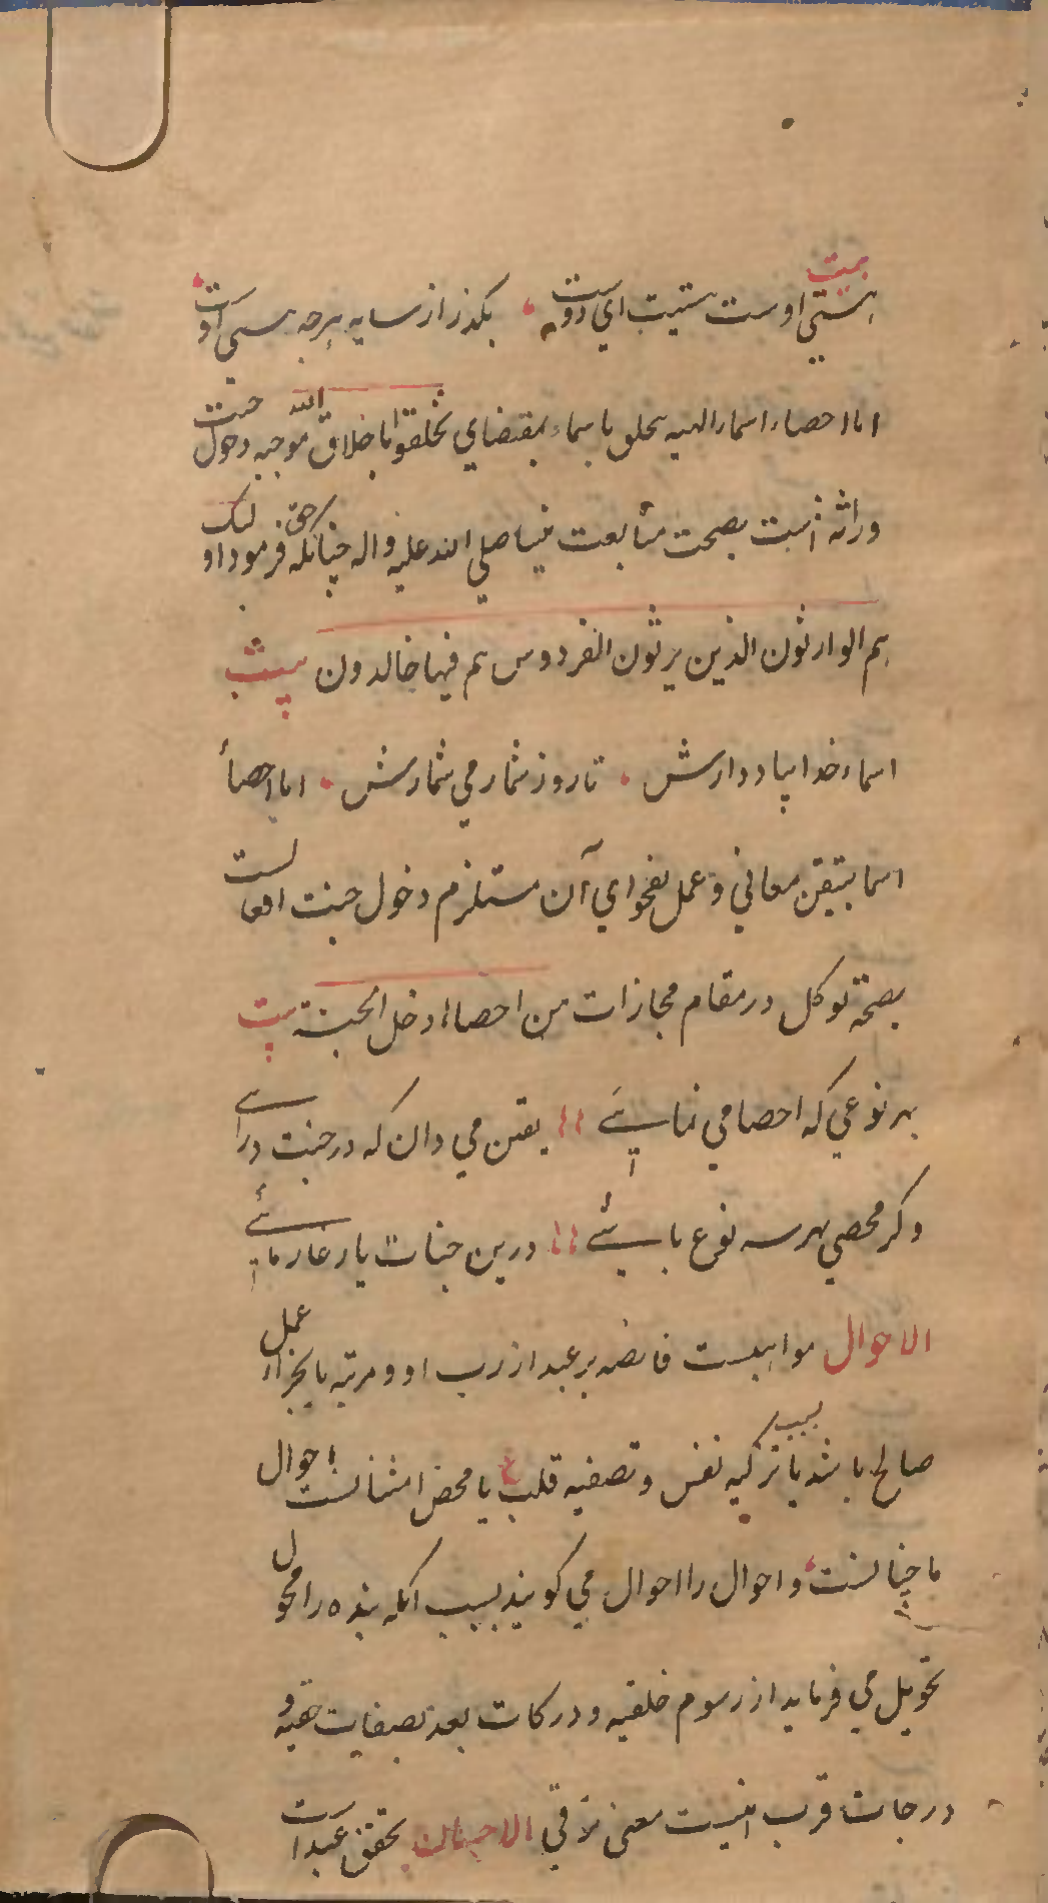 بیت
هستی اوست هستیت ای دوست بگذر از سایه هرچه هستی اوست
اما احصاء اسماء الهیه بتخلق باسماء بمقتضای تخلقوا باخلاق الله موجبه دخول جنت
وراثه است بصحت متابعت صلی الله علیه واله چنانکه حق فرمود اولئک
هم الوارثون الذین یرثون الفردوس هم فیها خالدون بیت
اسماء خدا بیاد دارش تا روز شمار می شمارش اما احصاء
اسما بتیقن معانی و عمل بفحوای آن مستلزم دخول جنت افعالست
بصحة توکل در مقام مجازات من احصاها دخل الجنة بیت
بهر نوعی که احصا می نمایی یقین می دان که در جنت درایی
وکر محصی بهر سه نوع باشی درین جنات یار غار مایی
الاحوال مواهبست فایضه بر عبد از رب او و مرتبه یا بجزاء عمل
صالح باشد یا بسبب تزکیه نفس و تصفیه قلب یا محض امتنانست احوال
ما چنانست و احوال را احوال می کویند بسبب انکه بنده را محول
تحویل می فرماید از رسوم خلقیه و درکات بعد بصفات حقیه و
درجات قرب اینست معنی ترقی الاحسان تحقق عبد است